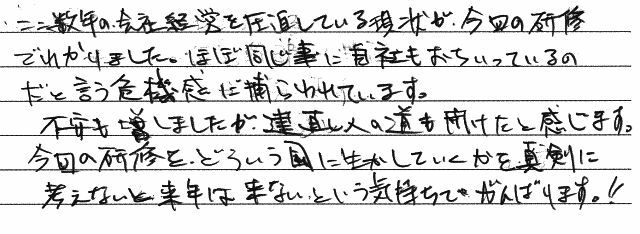 ここ数年の会社経営を圧迫している現状が、今回の研修
でわかりました。ほぼ同じ事に自社もおちいっているの
だと言う危機感に捕らわれています。
不安も増しましたが、達人の道も開けたと感じます。
今回の研修を、どういう風に生かしていくかを真剣に
考えないと来年は来ないという気持ちでがんばります。!!